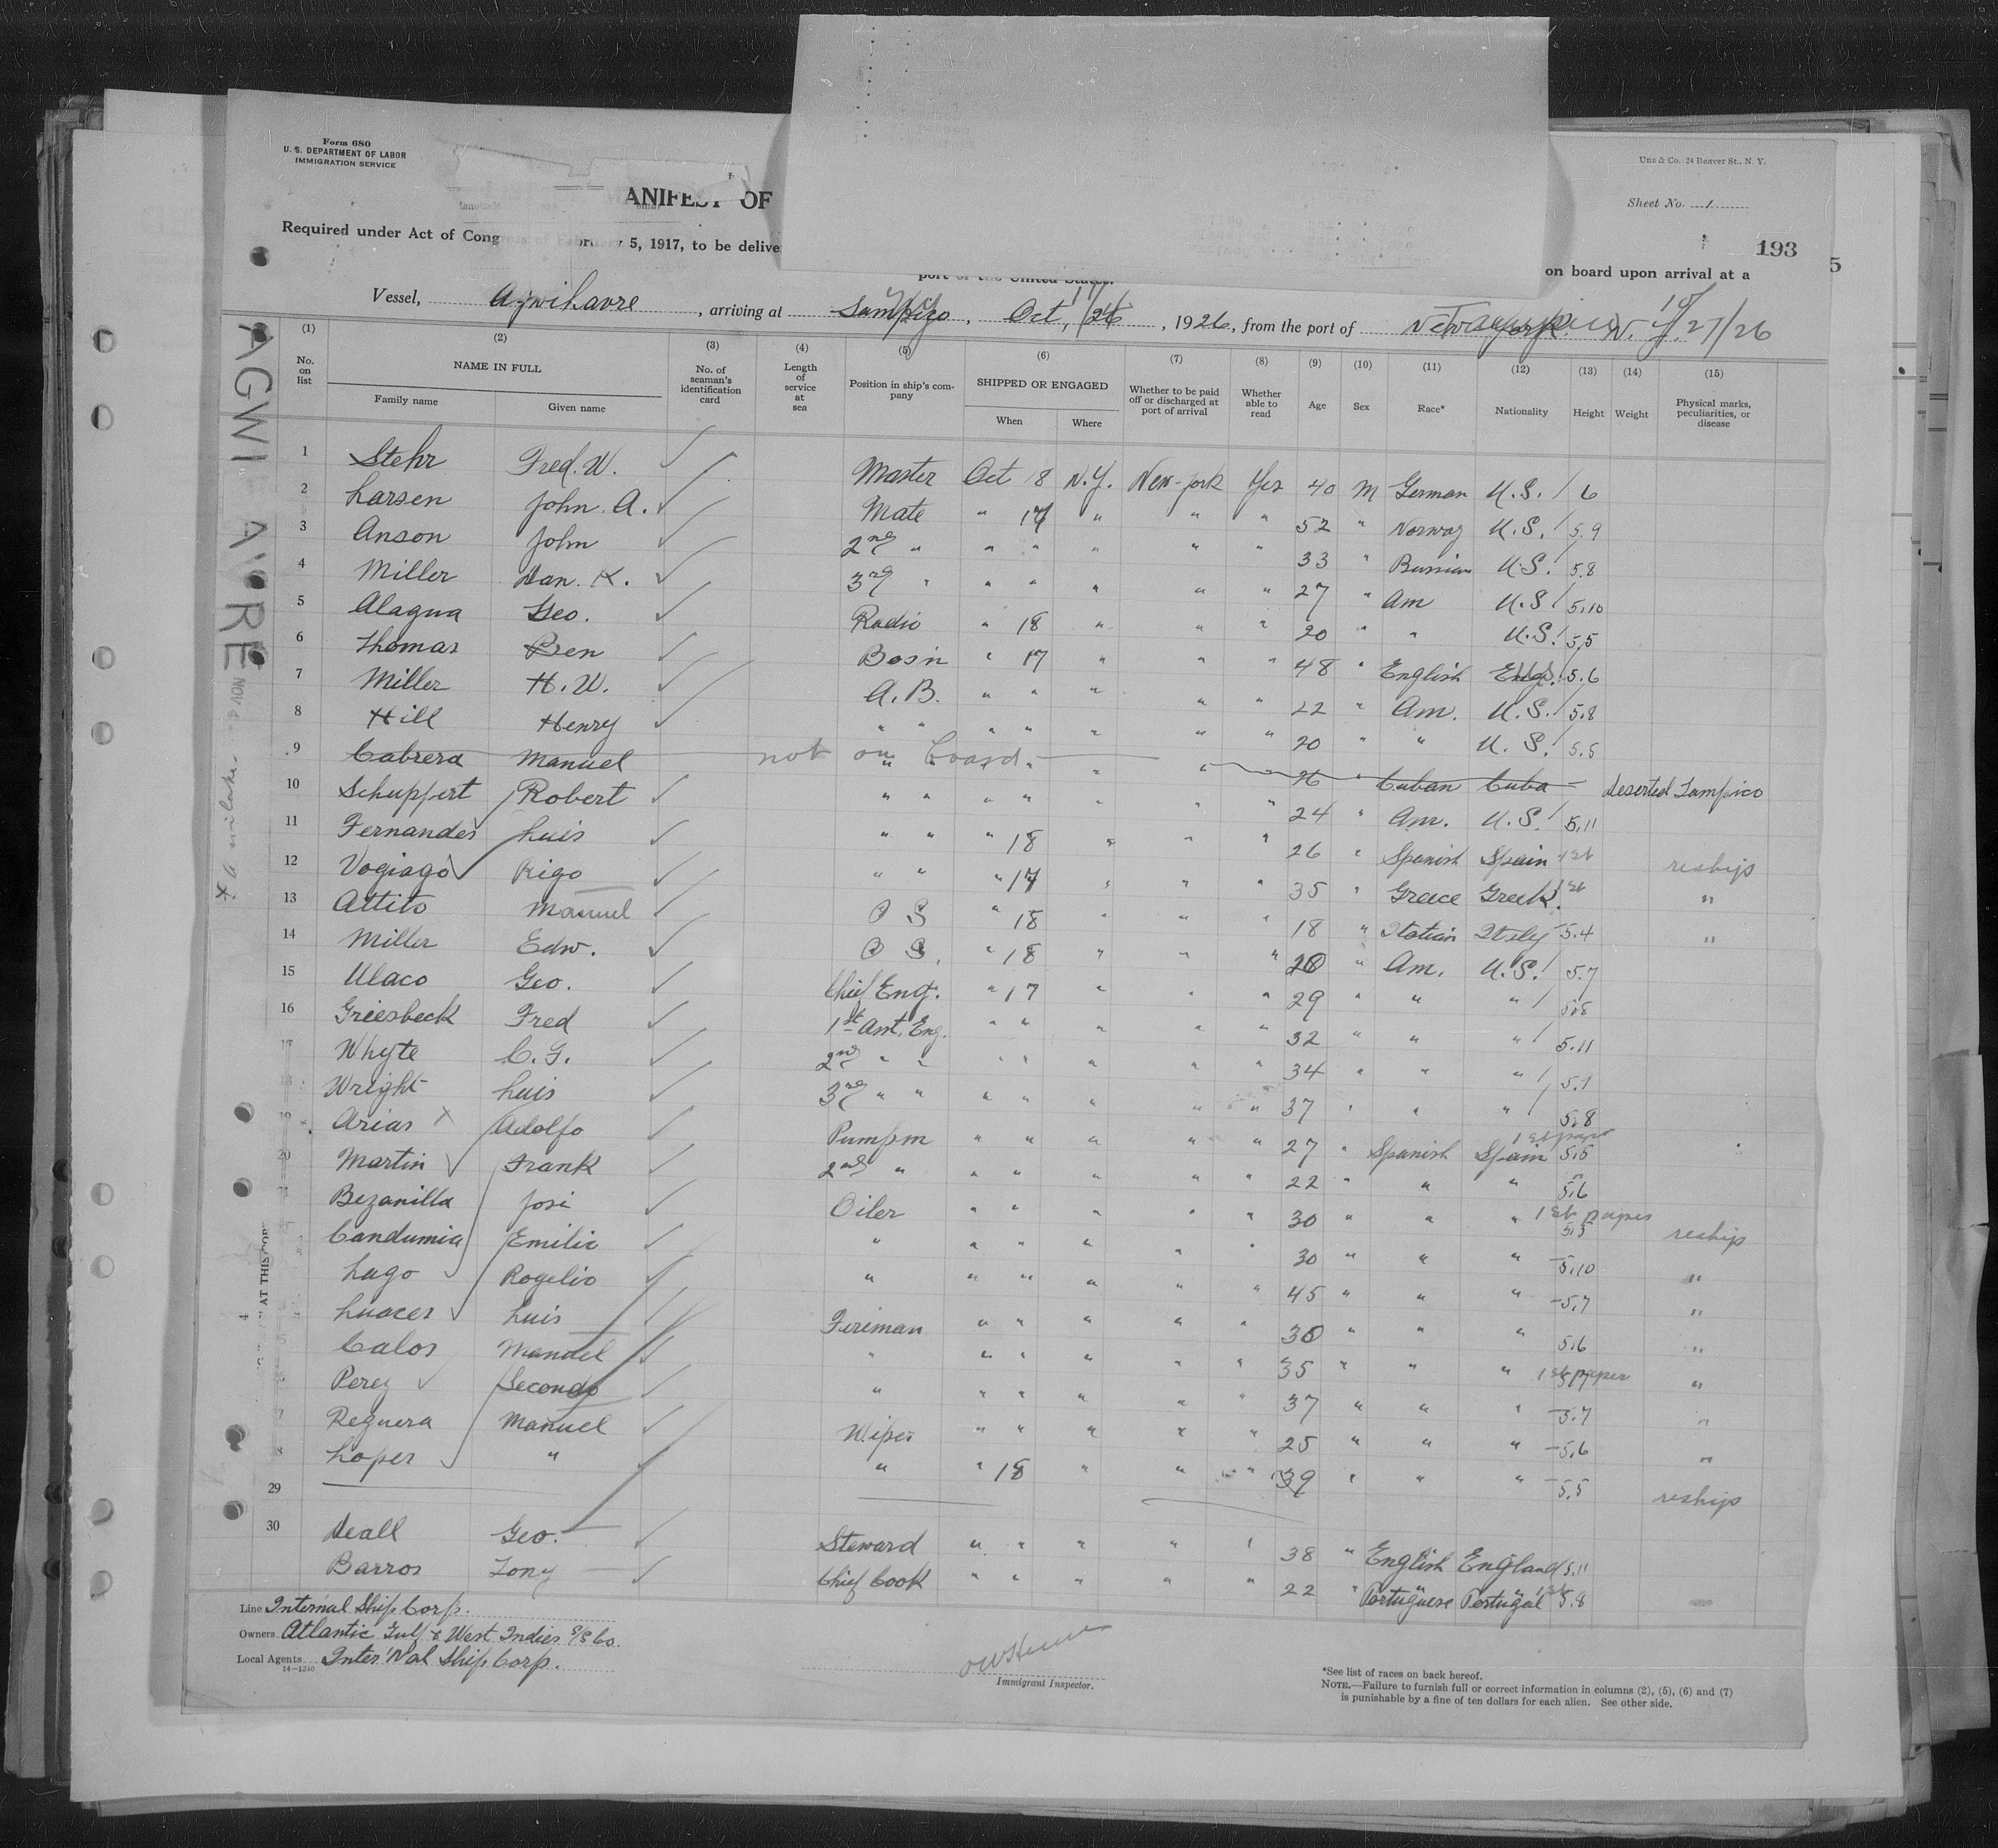 Form 680
U. S. DEPARTMENT OF LABOR
IMMIGRATION SERVICE
Una & Co. 24 Beaver St., N. Y.
Sheet No. 1
ANIFEST OF
193
Required under Act of Cong ress of February 5, 1917, to be delive on board upon arrival at a
port of the United States.
5
Vessel, Agwihavre, arriving at Oct, 1926, from the port of N.Y. 27/26
(1) (2) (3) (4) (5) (6) (7) (8) (9) (10) (11) (12) (13) (14) (15)
No. on list NAME IN FULL No. of seaman's identification card Length of service at sea Position in ship's company SHIPPED OR ENGAGED Whether to be paid off or discharged at port of arrival Whether able to read Age Sex Race* Nationality Height Weight Physical marks, peculiarities, or disease
Family name Given name When Where
1 Stehr Fred. W. Master Oct 18 N.Y. New-york Yes 40 M German U.S. 6
2 Larsen John. A. Mate " 17 " " " 52 " Norway U.S. 5.9
3 Anson John 2nd " " " " " " 33 " Russian U.S. 5.8
4 Miller Dan. K. 3rd " " " " " " 27 " Am U.S 5.10
5 Alagna Geo. Radio " 18 " " " 20 " " U.S. 5,5
6 Thomas Ben Bosn " 17 " " " 48 " English 5.6
7 Miller H. W. A.B. " " " " " 22 " Am. U.S. 5.8
8 Hill Henry " " " " " " " 20 " " U.S. 5.5
9 Cabrera Manuel not on board " " " 26 " Cuban Cuba deserted Tampico
10 Schuppert Robert " " " " " " " 24 " Am. U.S. 5,11
11 Fernandes Luis " " " 18 " " " 26 " Spanish Spain 1st reship
12 Vogiago Rigo " " " 17 " " " 35 " Greece Greek. 1st "
13 Attito Manuel O S " 18 " " " 18 " Italian Italy 5.4 "
14 Miller Edw. O S. " 18 " " " 20 " Am. U.S. 5.7
15 Ulaco Geo. Chief Eng. " 17 " " " 29 " " " 5.8
16 Griesbeck Fred 1st Asst. Eng. " " " " " 32 " " " 5.11
17 Whyte C. G. 2nd " " " " " " " 34 " " " 5.7
18 Wright Luis 3rd " " " " " " " 37 " " " 5.8
19 Arias x Adolfo Pumpm " " " " " 27 " Spanish Spain 1st paper 5.5
20 Martin Frank 2nd " " " " " " 22 " " " 5.6
21 Bezanilla Josi Oiler " " " " " 30 " " " 1st paper 5.5 reship
Candumia Emilio " " " " " " 30 " " " 5.10 "
Lago Rogelio " " " " " " 45 " " " 5.7 "
Luaces Luis Fireman " " " " " 30 " " " 5.6 "
Calos Manuel " " " " " " 35 " " " 1st paper "
Perez Secondo " " " " " " 37 " " " 5.7 "
7 Reguera Manuel Wiper " " " " " 25 " " " 5.6 "
8 Lopes " " " 18 " " " 39 " " " 5.5 reship
29
30 Deall Geo. Steward " " " " " 38 " English England 5.11
Barros Tony Chief Cook " " " " " 22 " Portuguese Portugal 1st 5.8
Line Internal Ship Corp.
Owners Atlantic Gulf & West Indies S/S Co.
Local Agents Inter'Nal Ship Corp.
14—1240
Immigrant Inspector.
*See list of races on back hereof.
NOTE.—Failure to furnish full or correct information in columns (2), (5), (6) and (7)
is punishable by a fine of ten dollars for each alien. See other side.
AT THIS POR